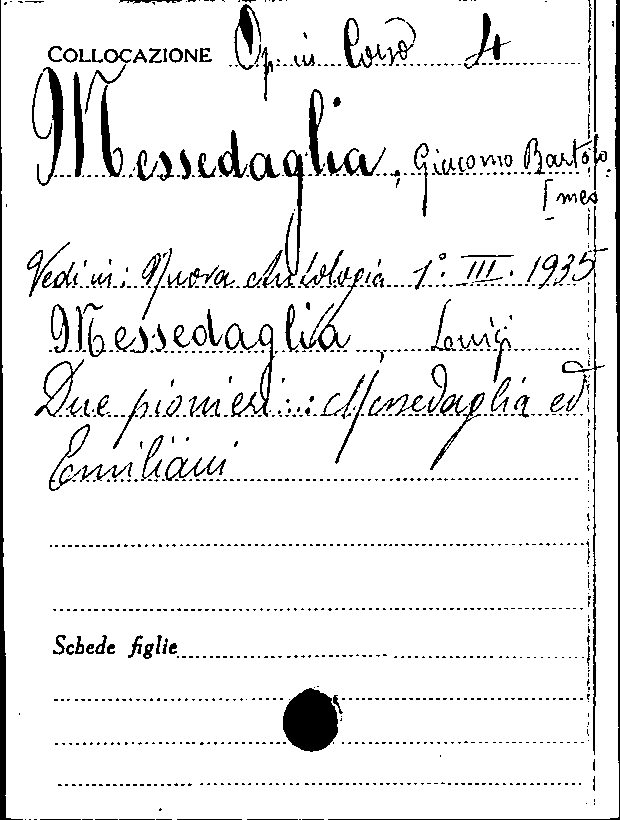 COLLOCAZIONE Op. in Corso 4
Messedaglia, Giacomo Bartolo
meo
Vedi in: Nuova Antologia 1° III. 1935
Messedaglia, Luigi
Due pionieri: Messedaglia ed
Emiliani
Schede figlie